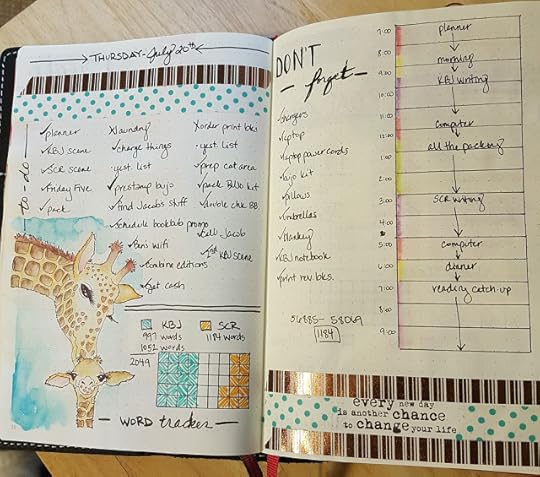 THURSDAY - July 20th
to-do
✓planner
✓KBJ scene
✓SCR scene
✓Friday Five
✓pack
xlaundry
✓charge things
-yest list
✓prestamp bujo
✓find Jacob's stuff
✓schedule bookbub promo
wifi
✓combine editions
✓get cash
xorder print bks
-yest list
✓prep cat area
✓pack BuJo kit
BB
call Jacob
✓1st KBJ scene
KBJ
997 words
1052 words
SCR
1184 words
2049
WORD tracker
DON'T
forget
✓chargers
✓laptop
✓laptop power cords
✓bujo kit
✓pillows
✓umbrellas
✓blankey
✓KBJ notebook
✓print rev. bks.
56885-58069
1184
7:00
8:00
9:00
10:00
11:00
12:00
1:00
2:00
3:00
4:00
5:00
6:00
7:00
8:00
9:00
planner
morning
KBJ writing
computer
all the packing
SCR writing
computer
dinner
reading catch-up
every new day
is another chance
to change your life